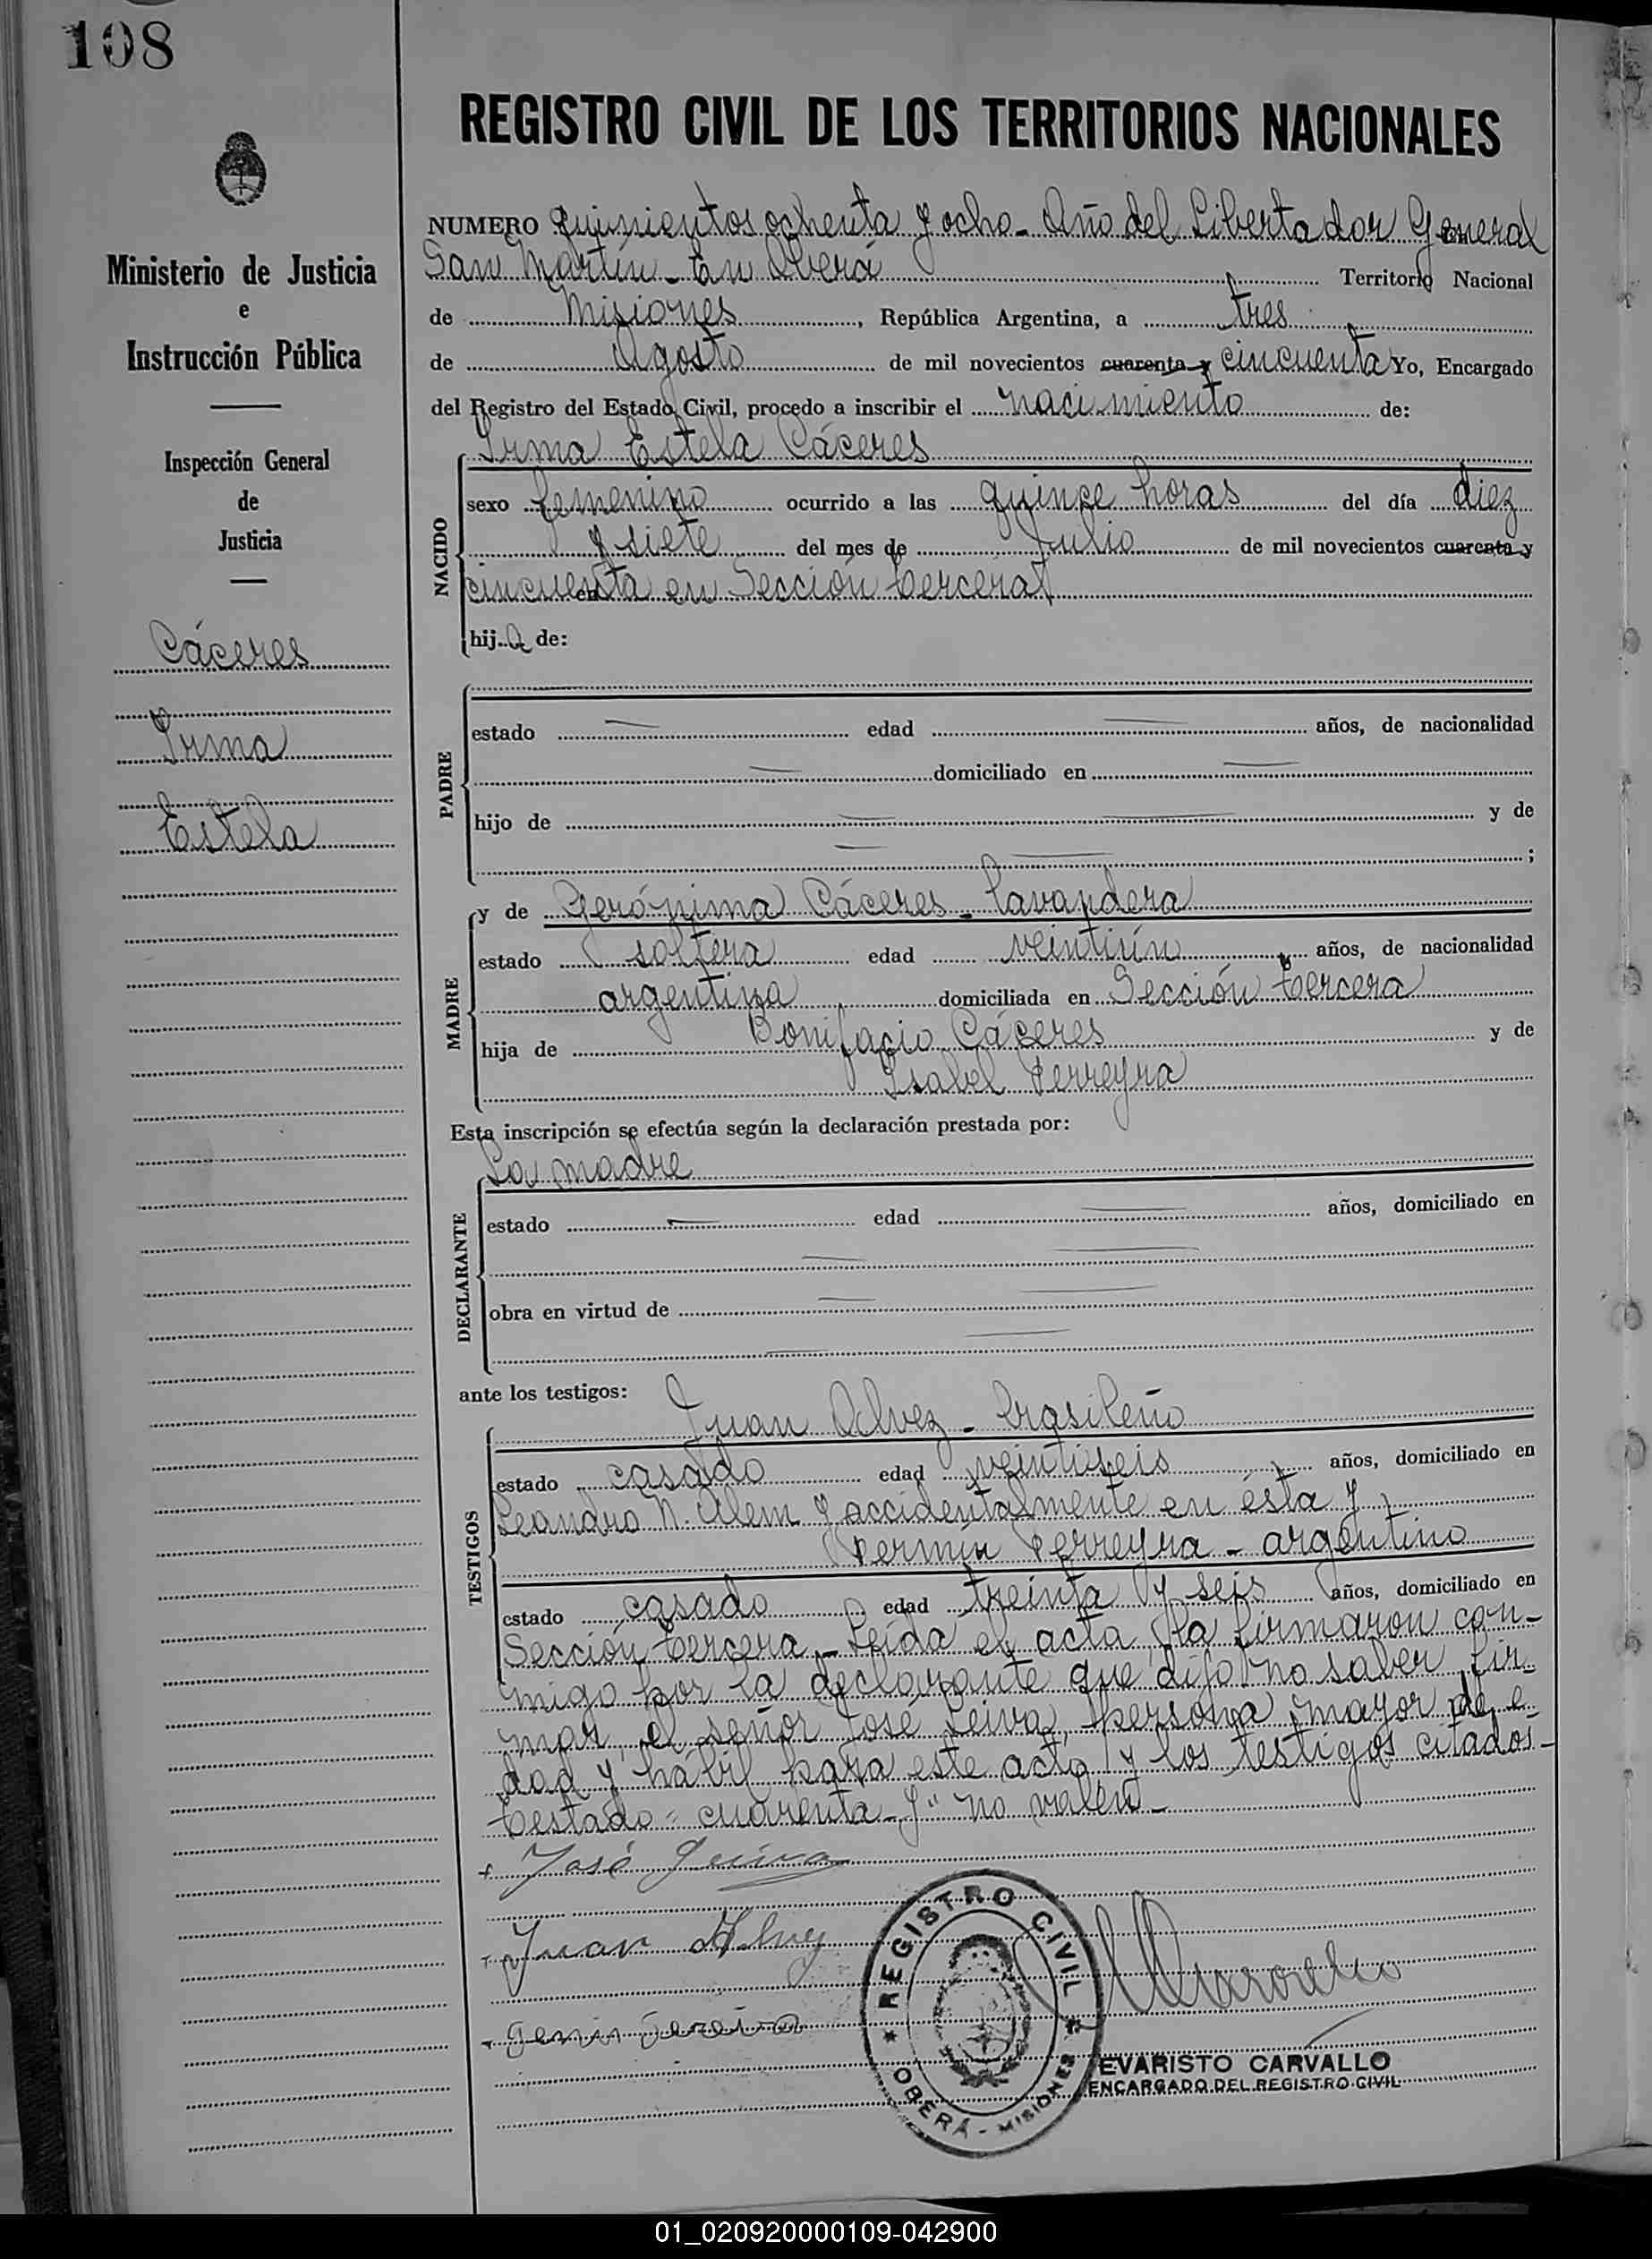 108
REGISTRO CIVIL DE LOS TERRITORIOS NACIONALES
Ministerio de Justicia
e
Instrucción Pública
Inspección General
de
Justicia
Cáceres
Irma
Estela
NUMERO quinientos ochenta y ocho - Año del Libertador General
San Martín - En Oberá Territorio Nacional
de Misiones, República Argentina, a tres
de Agosto de mil novecientos cuarenta y cincuenta Yo, Encargado
del Registro del Estado Civil, procedo a inscribir el nacimiento de:
Irma Estela Cáceres
NACIDO
sexo femenino ocurrido a las quince horas del día diez
y siete del mes de Julio de mil novecientos cuarenta y
cincuenta en Sección tercera
hija de:
PADRE
estado edad años, de nacionalidad
domiciliado en
hijo de y de
;
MADRE
y de Gerónima Cáceres - lavandera
estado soltera edad veintiún años, de nacionalidad
argentina domiciliada en Sección tercera
hija de Bonifacio Cáceres y de
Isabel Ferreyra
Esta inscripción se efectúa según la declaración prestada por:
La madre
DECLARANTE
estado edad años, domiciliado en
obra en virtud de
ante los testigos:
TESTIGOS
Juan Alvez - brasileño
estado casado edad veintiseis años, domiciliado en
Leandro N. Alem y accidentalmente en ésta y
Fermín Ferreyra - argentino
estado casado edad treinta y seis años, domiciliado en
Sección tercera - Leída el acta, la firmaron con-
migo por la declarante que dijo no saber fir-
mar, el señor José Leiva, persona mayor de e-
dad y hábil para este acto y los testigos citados -
testado = cuarenta y" no valen -
José Leiva
Juan Alvez
REGISTRO CIVIL
OBERÁ - MISIONES
EVARISTO CARVALLO
ENCARGADO DEL REGISTRO CIVIL
01_020920000109-042900